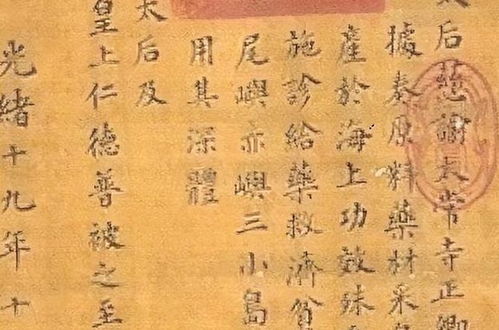 后慈諭太常寺正卿
據奏原料藥材采
產於海上功效殊
施診給藥救濟貧
尾嶼赤嶼三小島
用其深體
太后及
皇上仁德普被之至
光緒十九年十